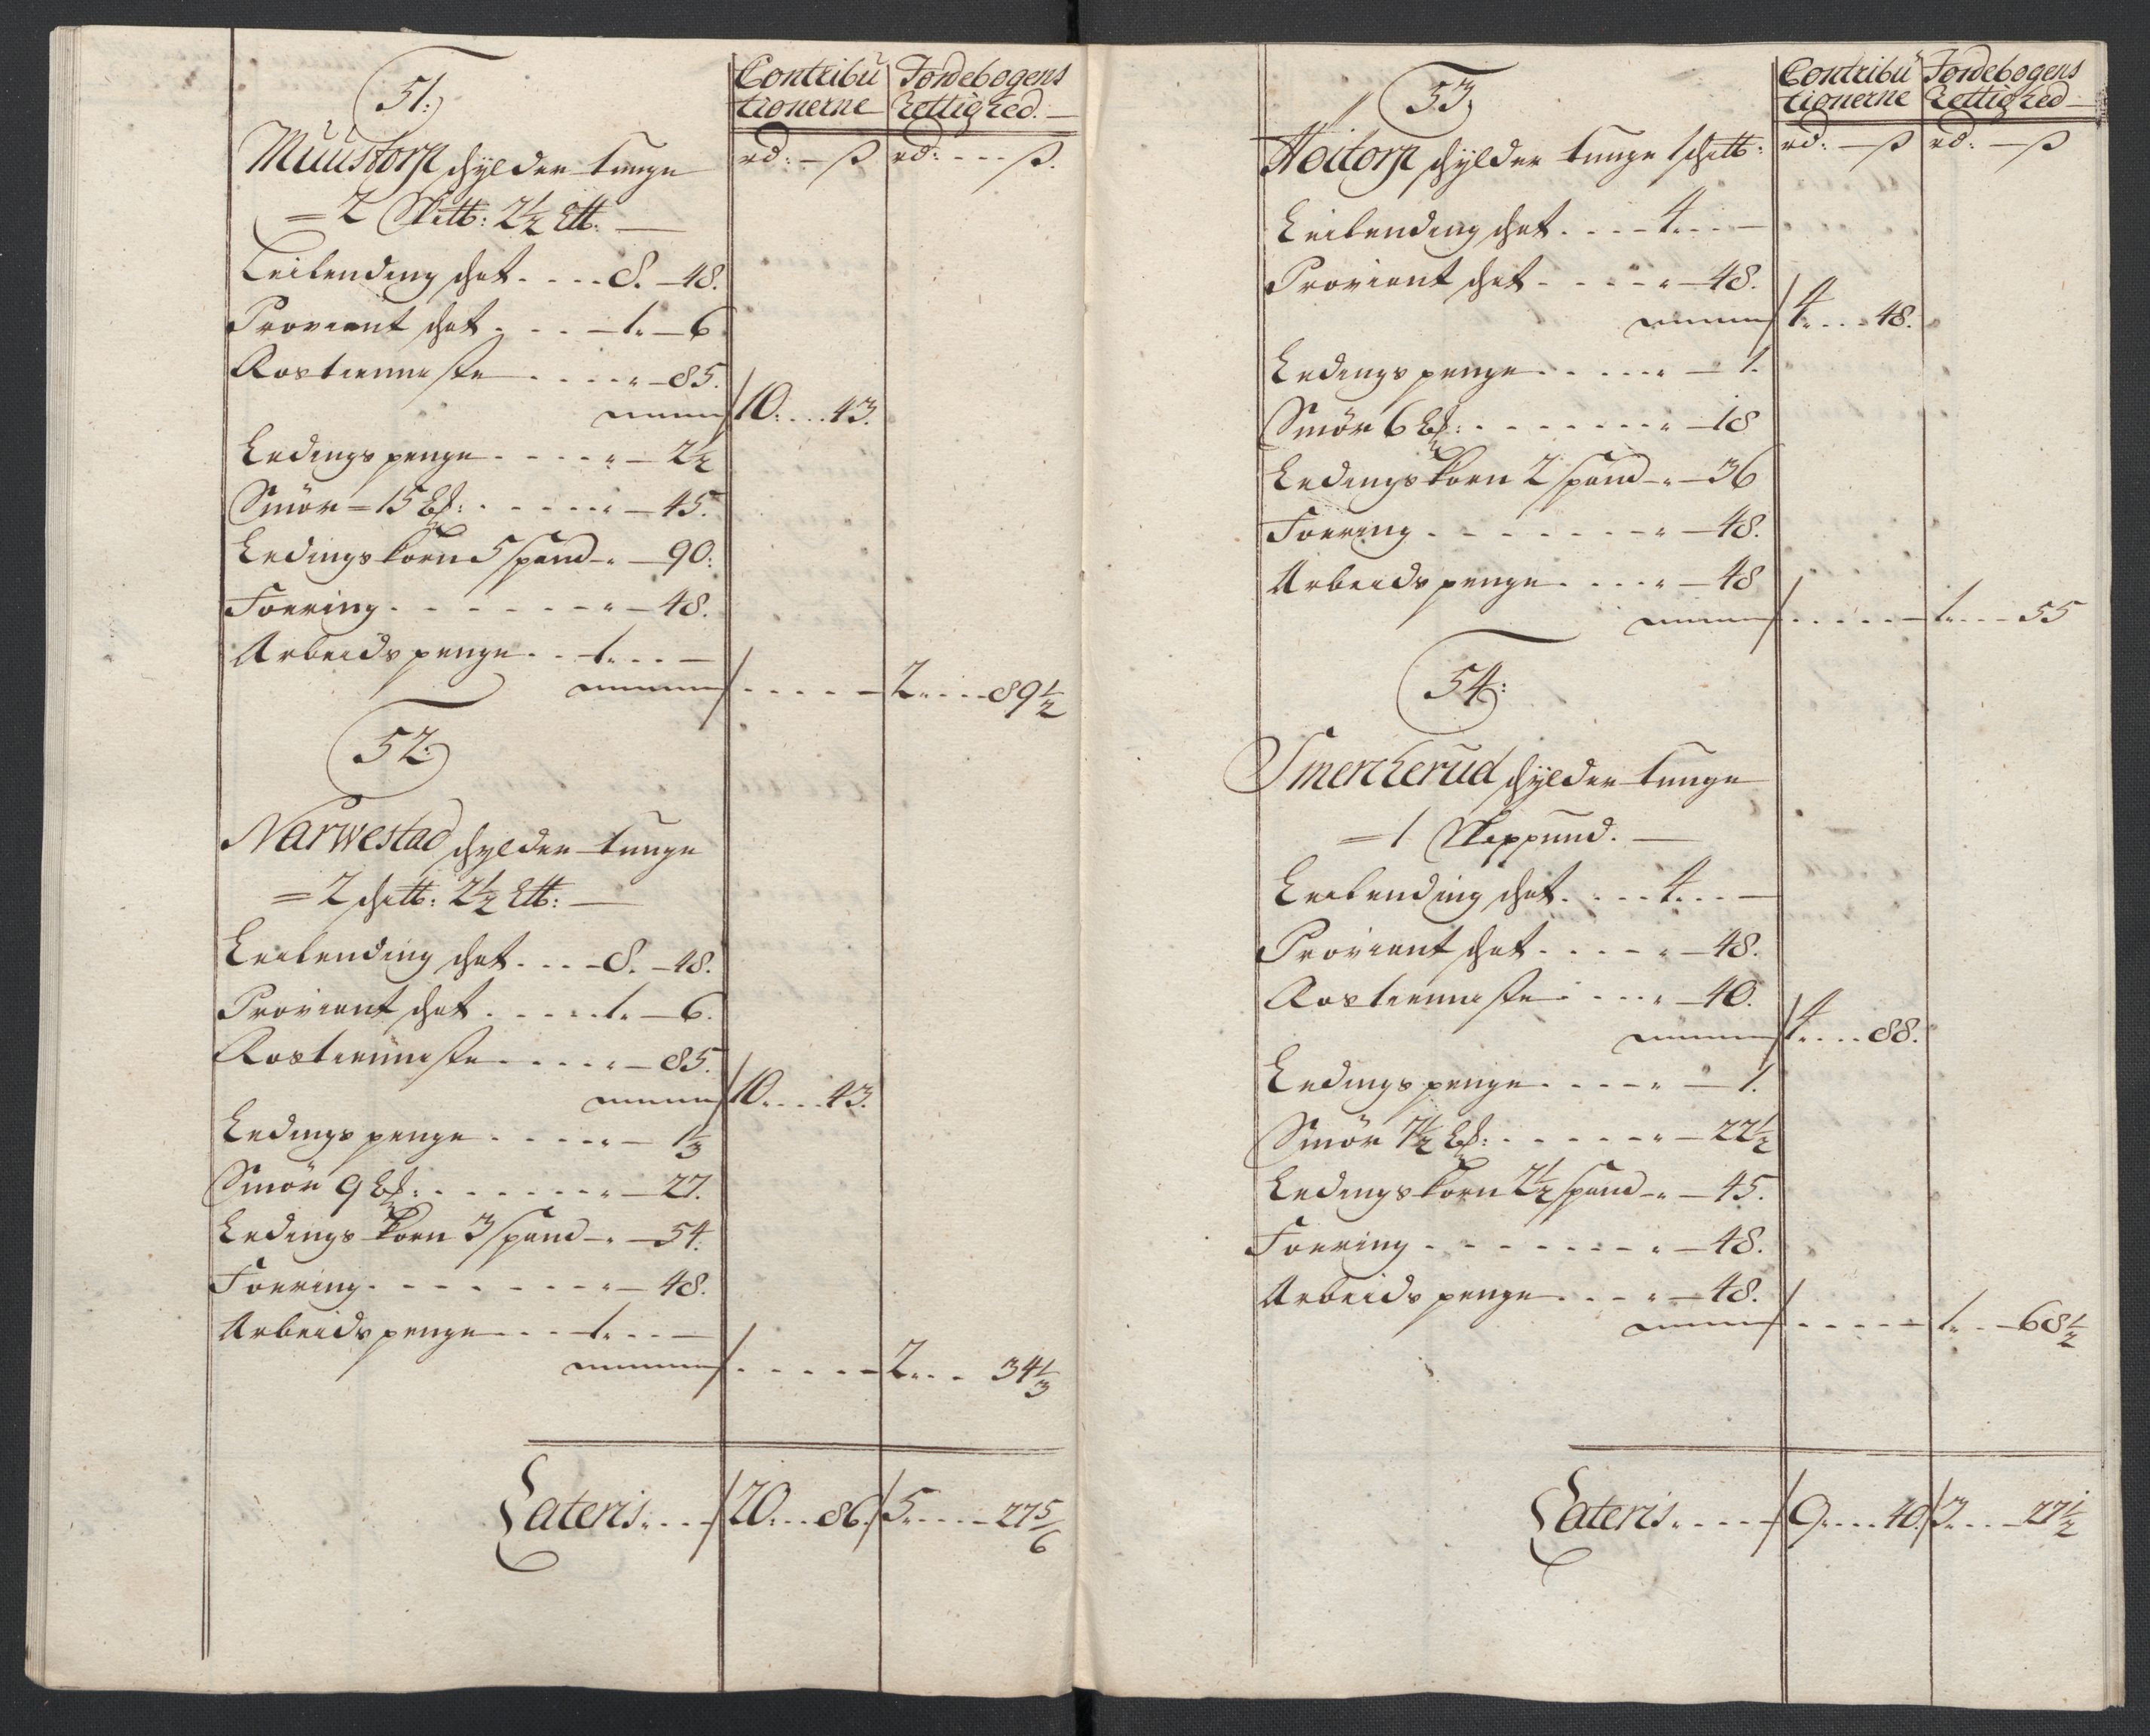 51.
Contribu
tionerne
Jordebogens
Rettighed.
Muustorp schylder tunge
rd: ß rd: ß.
= 2 Skett: 2½ Ltt:
Leilending schat . . . . 8. 48.
Proviant schat . . . 1. 6
Rostienneste . . . . „ 85.
10. . . . 43.
Ledingspenge . . . . „ 2½
Smör = 15 . . . . „ 45.
Ledingskorn 5 spand „ 90:
Foering . . . . . . „ 48.
Arbeidspenge . . 1. . . —
. . . . . 2. . . . 89½
52.
Narwestad schylder tunge
= 2 schett: 2½ Ltt:
Leilending schat . . . 8. 48.
Proviant schat . . . . 1. 6.
Rostienneste . . . . „ 85.
10. . . . 43.
Ledingspenge . . . . „ 1⅓
Smör 9 . . . . . . „ 27.
Ledings Korn 3 spand „ 54.
Foering . . . . . . „ 48.
Arbeidspenge . . . 1. . . —
. . . . . 2. . . . 34⅓
Lateris. . . . 20. . . 86. 5. . . . 27⅚
53.
Contribu
tionerne
Jordebogens
Rettighed
Heitorp schylder tunge 1 schett:
rd: ß rd: ß
Leilending schat . . . . 4. . . —
Proviant schat . . . . „ 48.
4. . . . 48.
Ledingspenge . . . . . „ 1.
Smör 6 . . . . . . . „ 18
Ledingskorn 2 spand „ 36
Foering . . . . . . „ 48.
Arbeidspenge . . . . „ 48
. . . . . 1. . . . 55
54.
Smerckerud schylder tunge
= 1 Skeppund.
Leilending schat . . . . 4. . . —
Proviant schat . . . . „ 48.
Rostienneste . . . . „ 40.
4. . . . 88.
Ledingspenge . . . . „ 1.
Smör 7½ . . . . . . „ 22½
Ledingskorn 2½ spand „ 45.
Foering . . . . . . . „ 48.
Arbeidspenge . . . „ 48.
. . . . . 1. . . 68½
Lateris. . . . . 9. . . . 40. 3. . . . 27½